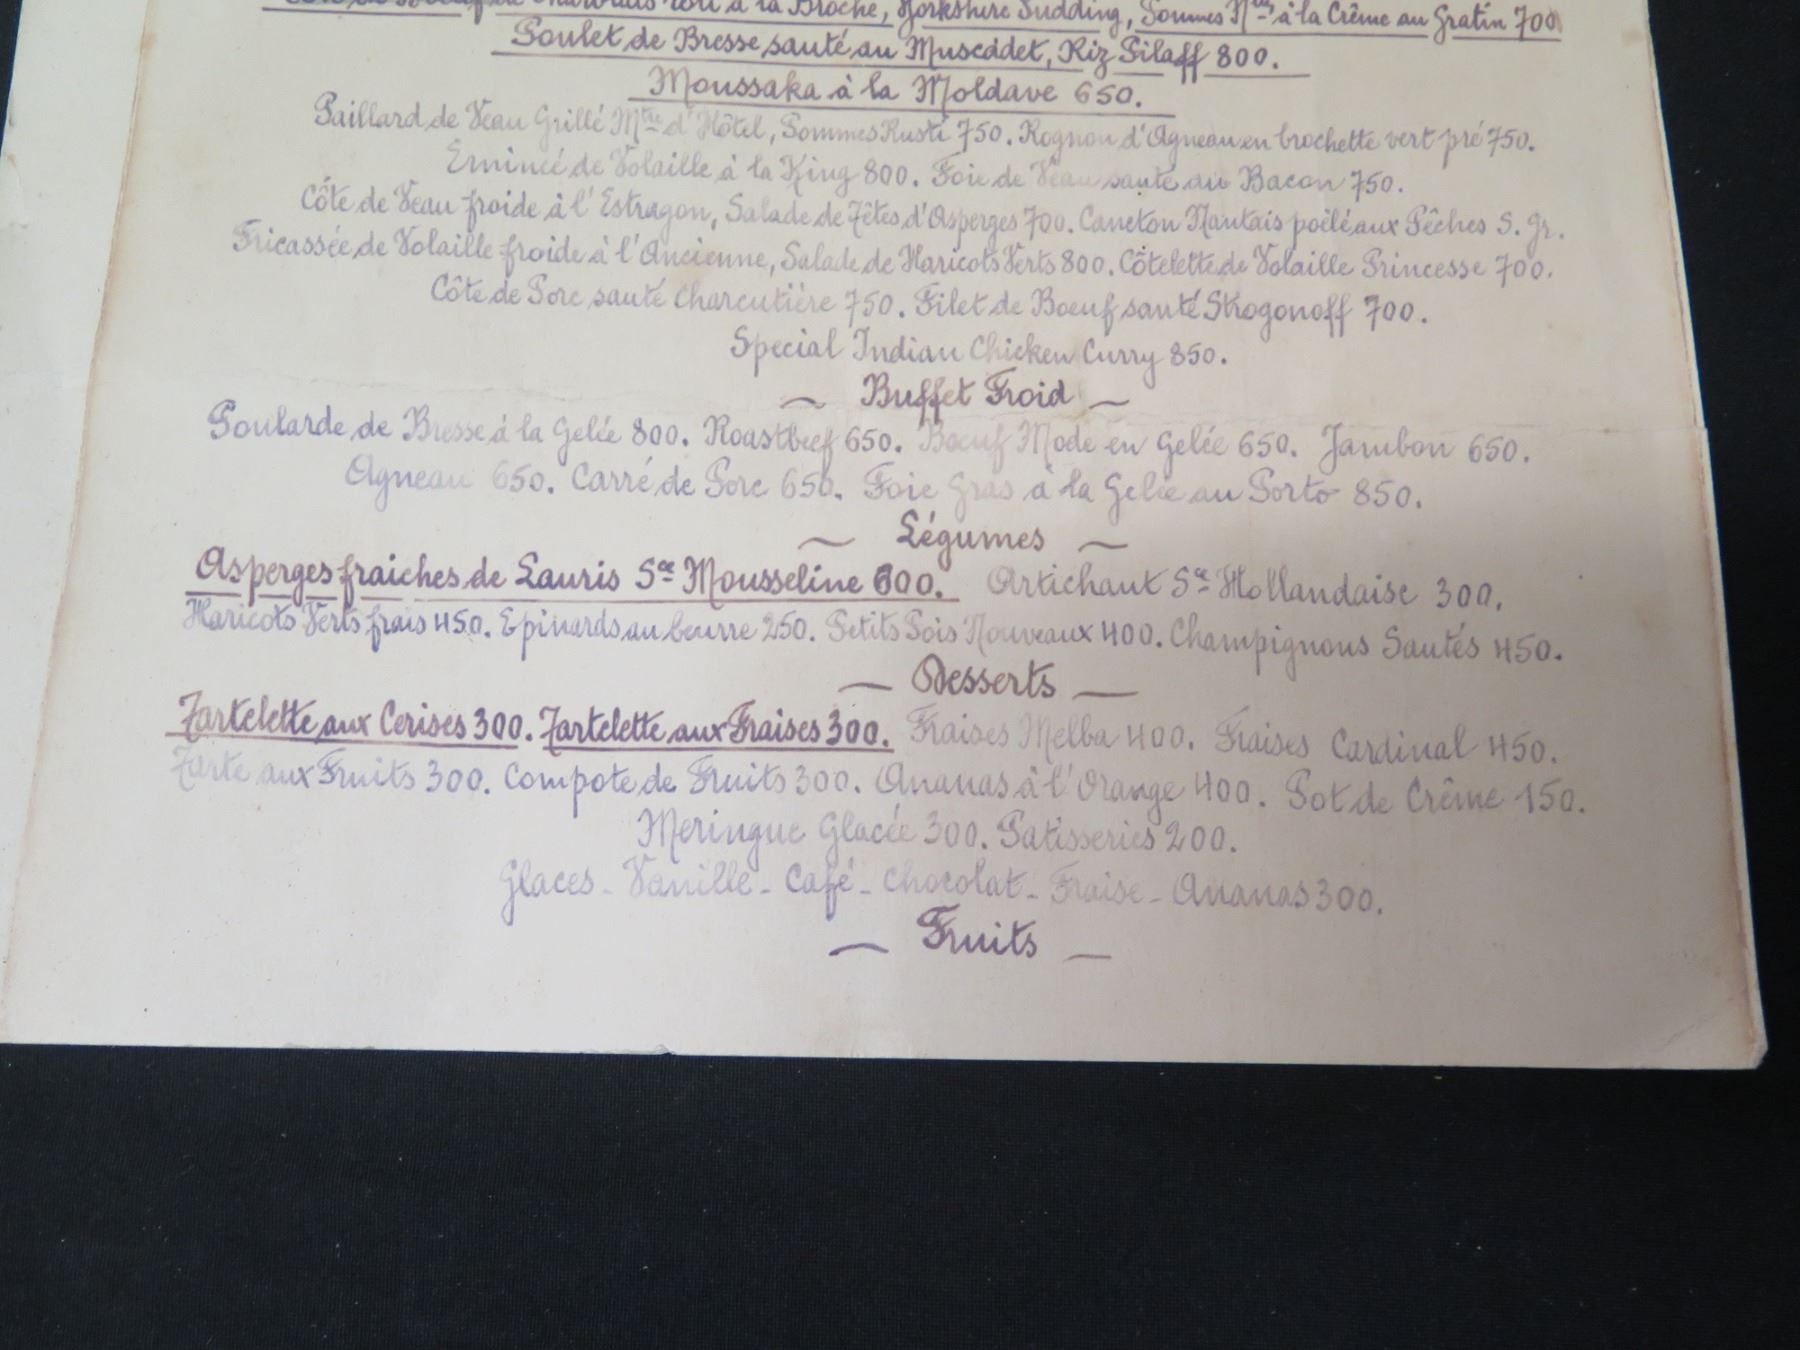 de Charolais rôti à la Broche, Yorkshire Pudding, Pommes Nlles à la Crême au Gratin 700
Poulet de Bresse sauté au Muscadet, Riz Pilaff 800.
Moussaka à la Moldave 650.
Paillard de Veau Grillé Mtre d'Hôtel, Pommes Rusti 750. Rognon d'Agneau en brochette vert pré 750.
Emincé de Volaille à la King 800. Foie de Veau sauté au Bacon 750.
Côte de Veau froide à l'Estragon, Salade de Têtes d'Asperges 700. Caneton Nantais poêlé aux Pêches S. Gr.
Fricassée de Volaille froide à l'Ancienne, Salade de Haricots Verts 800. Côtelette de Volaille Princesse 700.
Côte de Porc sauté Charcutière 750. Filet de Boeuf sauté Strogonoff 700.
Special Indian Chicken Curry 850.
~ Buffet Froid ~
Poularde de Bresse à la Gelée 800. Roastbeef 650. Boeuf Mode en Gelée 650. Jambon 650.
Agneau 650. Carré de Porc 650. Foie Gras à la Gelée au Porto 850.
~ Légumes ~
Asperges fraiches de Lauris Sce Mousseline 600. Artichaut Sce Hollandaise 300.
Haricots Verts frais 450. Epinards au beurre 250. Petits Pois Nouveaux 400. Champignons Sautés 450.
— Desserts —
Tartelette aux Cerises 300. Tartelette aux Fraises 300. Fraises Melba 400. Fraises Cardinal 450.
Tarte aux Fruits 300. Compote de Fruits 300. Ananas à l'Orange 400. Pot de Crême 150.
Meringue Glacée 300. Patisseries 200.
Glaces - Vanille - Café - Chocolat - Fraise - Ananas 300.
— Fruits —